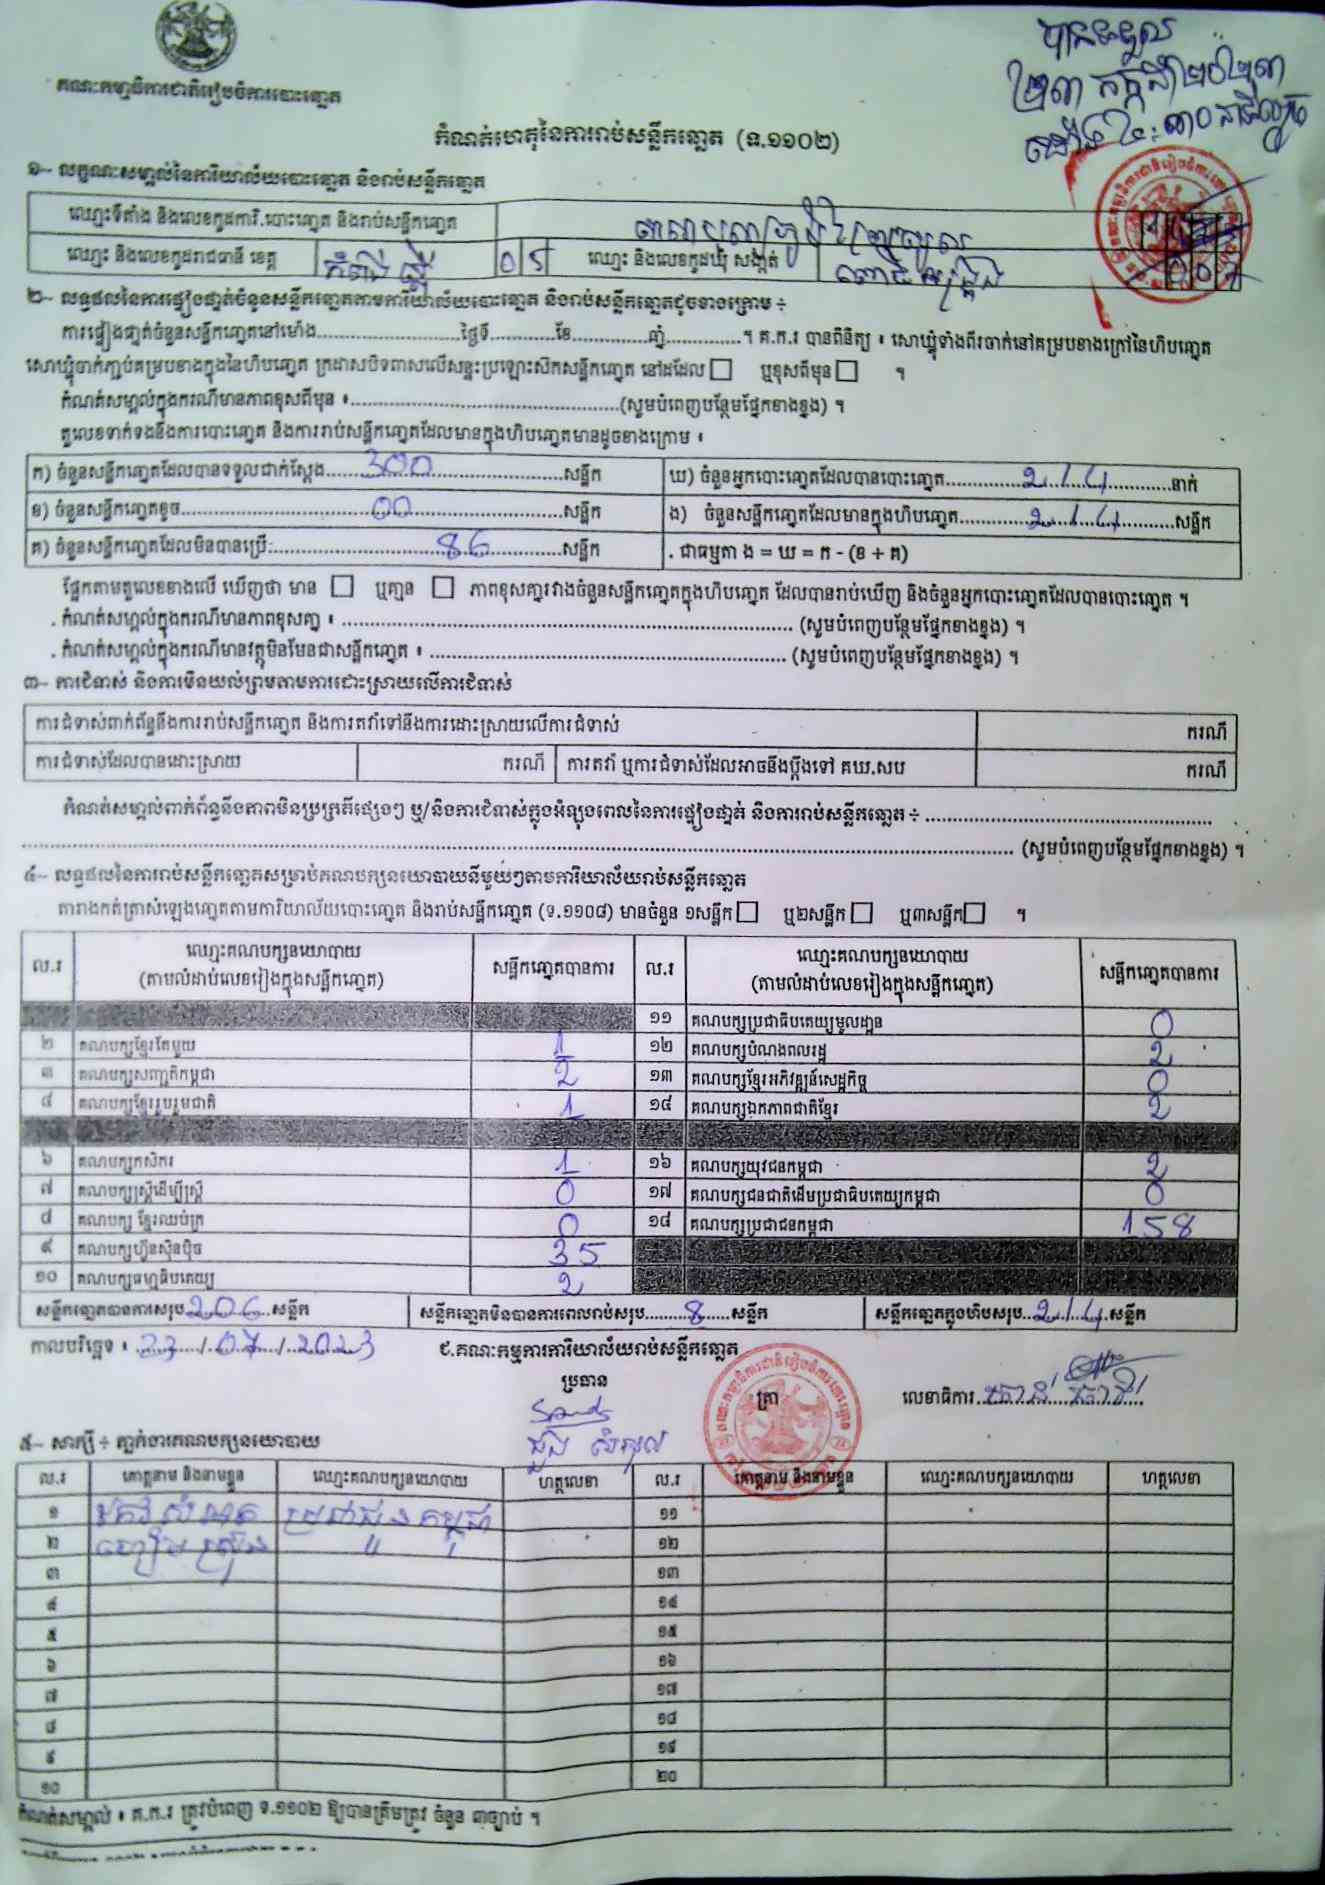 បានទទួល
២៣ កក្កដា ២០២៣
គណៈកម្មាធិការជាតិរៀបចំការបោះឆ្នោត
កំណត់ហេតុនៃការរាប់សន្លឹកឆ្នោត (ទ.១១០២)
១~ លក្ខណៈសម្គាល់នៃការិយាល័យបោះឆ្នោត និងរាប់សន្លឹកឆ្នោត
ឈ្មោះទីតាំង និងលេខកូដការិ.បោះឆ្នោត និងរាប់សន្លឹកឆ្នោត
ឈ្មោះ និងលេខកូដរាជធានី ខេត្ត កំពង់ស្ពឺ 05 ឈ្មោះ និងលេខកូដឃុំ សង្កាត់
២~ លទ្ធផលនៃការផ្ទៀងផ្ទាត់ចំនួនសន្លឹកឆ្នោតតាមការិយាល័យបោះឆ្នោត និងរាប់សន្លឹកឆ្នោតដូចខាងក្រោម ÷
ការផ្ទៀងផ្ទាត់ចំនួនសន្លឹកឆ្នោតនៅម៉ោង..........ថ្ងៃទី..........ខែ..........ឆ្នាំ..........។ គ.ក.រ បានពិនិត្យ ៖ សោឃ្លុំទាំងពីរចាក់នៅគម្របខាងក្រៅនៃហិបឆ្នោត
សោឃ្លុំចាក់ភ្ជាប់គម្របខាងក្នុងនៃហិបឆ្នោត ក្រដាសបិទពាសលើសន្ទះប្រឡោះសិកសន្លឹកឆ្នោត នៅដដែល □ ឬខុសពីមុន □ ។
កំណត់សម្គាល់ក្នុងករណីមានភាពខុសពីមុន ៖..........(សូមបំពេញបន្ថែមផ្នែកខាងខ្នង) ។
តួលេខទាក់ទងនឹងការបោះឆ្នោត និងការរាប់សន្លឹកឆ្នោតដែលមានក្នុងហិបឆ្នោតមានដូចខាងក្រោម ៖
ក) ចំនួនសន្លឹកឆ្នោតដែលបានទទួលជាក់ស្តែង.....300.....សន្លឹក ឃ) ចំនួនអ្នកបោះឆ្នោតដែលបានបោះឆ្នោត.....214.....នាក់
ខ) ចំនួនសន្លឹកឆ្នោតខូច.....00.....សន្លឹក ង) ចំនួនសន្លឹកឆ្នោតដែលមានក្នុងហិបឆ្នោត.....214.....សន្លឹក
គ) ចំនួនសន្លឹកឆ្នោតដែលមិនបានប្រើ:.....86.....សន្លឹក . ជាធម្មតា ង = ឃ = ក - (ខ + គ)
ផ្អែកតាមតួលេខខាងលើ ឃើញថា មាន □ ឬគ្មាន □ ភាពខុសគ្នារវាងចំនួនសន្លឹកឆ្នោតក្នុងហិបឆ្នោត ដែលបានរាប់ឃើញ និងចំនួនអ្នកបោះឆ្នោតដែលបានបោះឆ្នោត ។
. កំណត់សម្គាល់ក្នុងករណីមានភាពខុសគ្នា ៖ .......... (សូមបំពេញបន្ថែមផ្នែកខាងខ្នង) ។
. កំណត់សម្គាល់ក្នុងករណីមានវត្ថុមិនមែនជាសន្លឹកឆ្នោត ៖ .......... (សូមបំពេញបន្ថែមផ្នែកខាងខ្នង) ។
៣~ ការជំទាស់ និងការមិនយល់ព្រមតាមការដោះស្រាយលើការជំទាស់
ការជំទាស់ពាក់ព័ន្ធនឹងការរាប់សន្លឹកឆ្នោត និងការតវ៉ាទៅនឹងការដោះស្រាយលើការជំទាស់ ករណី
ការជំទាស់ដែលបានដោះស្រាយ ករណី ការតវ៉ា ឬការជំទាស់ដែលអាចនឹងប្តឹងទៅ គឃ.សប ករណី
កំណត់សម្គាល់ពាក់ព័ន្ធនឹងភាពមិនប្រក្រតីផ្សេងៗ ឬ/និងការជំទាស់ក្នុងអំឡុងពេលនៃការផ្ទៀងផ្ទាត់ និងការរាប់សន្លឹកឆ្នោត ÷ ..........
.......... (សូមបំពេញបន្ថែមផ្នែកខាងខ្នង) ។
៤~ លទ្ធផលនៃការរាប់សន្លឹកឆ្នោតសម្រាប់គណបក្សនយោបាយនីមួយៗតាមការិយាល័យរាប់សន្លឹកឆ្នោត
តារាងកត់ត្រាសំឡេងឆ្នោតតាមការិយាល័យបោះឆ្នោត និងរាប់សន្លឹកឆ្នោត (ទ.១១០៨) មានចំនួន ១សន្លឹក □ ឬ២សន្លឹក □ ឬ៣សន្លឹក □ ។
ល.រ ឈ្មោះគណបក្សនយោបាយ (តាមលំដាប់លេខរៀងក្នុងសន្លឹកឆ្នោត) សន្លឹកឆ្នោតបានការ ល.រ ឈ្មោះគណបក្សនយោបាយ (តាមលំដាប់លេខរៀងក្នុងសន្លឹកឆ្នោត) សន្លឹកឆ្នោតបានការ
១១ គណបក្សប្រជាធិបតេយ្យមូលដ្ឋាន 0
២ គណបក្សខ្មែរតែមួយ 1 ១២ គណបក្សបំណងពលរដ្ឋ 2
៣ គណបក្សសញ្ជាតិកម្ពុជា 2 ១៣ គណបក្សខ្មែរអភិវឌ្ឍន៍សេដ្ឋកិច្ច 0
៤ គណបក្សខ្មែររួបរួមជាតិ 1 ១៤ គណបក្សឯកភាពជាតិខ្មែរ 2
៦ គណបក្សកសិករ 1 ១៦ គណបក្សយុវជនកម្ពុជា 2
៧ គណបក្សស្ត្រីដើម្បីស្ត្រី 0 ១៧ គណបក្សជនជាតិដើមប្រជាធិបតេយ្យកម្ពុជា 0
៨ គណបក្ស ខ្មែរឈប់ក្រ 0 ១៨ គណបក្សប្រជាជនកម្ពុជា 158
៩ គណបក្សហ្វ៊ុនស៊ិនប៉ិច 35
១០ គណបក្សធម្មាធិបតេយ្យ 2
សន្លឹកឆ្នោតបានការសរុប..206..សន្លឹក សន្លឹកឆ្នោតមិនបានការពេលរាប់សរុប.....8.....សន្លឹក សន្លឹកឆ្នោតក្នុងហិបសរុប..214..សន្លឹក
កាលបរិច្ឆេទ ៖ 23/07/2023 ជ.គណៈកម្មការការិយាល័យរាប់សន្លឹកឆ្នោត
ប្រធាន ត្រា លេខាធិការ
៥~ សាក្សី ÷ ភ្នាក់ងារគណបក្សនយោបាយ
ល.រ គោត្តនាម និងនាមខ្លួន ឈ្មោះគណបក្សនយោបាយ ហត្ថលេខា ល.រ គោត្តនាម និងនាមខ្លួន ឈ្មោះគណបក្សនយោបាយ ហត្ថលេខា
១ ប្រជាជនកម្ពុជា ១១
២ ១២
៣ ១៣
៤ ១៤
៥ ១៥
៦ ១៦
៧ ១៧
៨ ១៨
៩ ១៩
១០ ២០
កំណត់សម្គាល់ ៖ គ.ក.រ ត្រូវបំពេញ ទ.១១០២ ឱ្យបានត្រឹមត្រូវ ចំនួន ៣ច្បាប់ ។